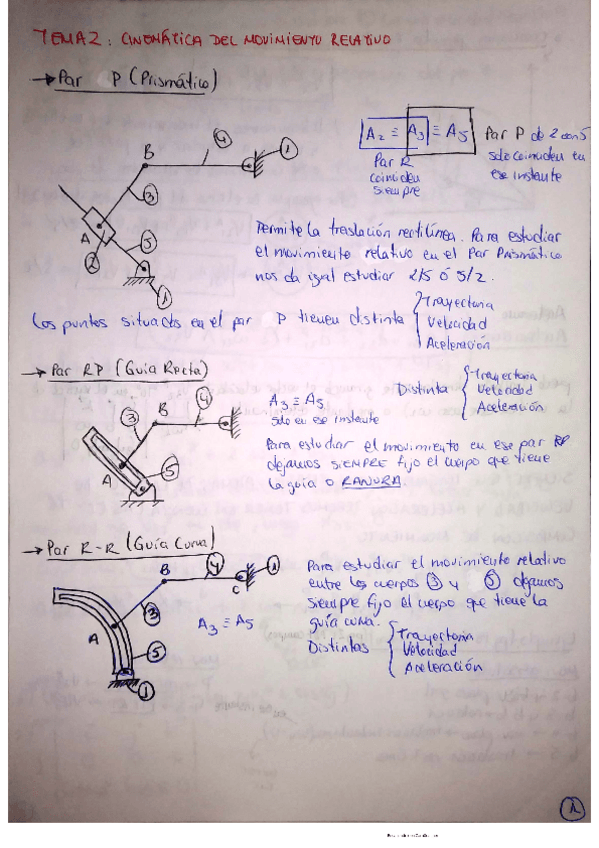 TEMA 2: CINEMÁTICA DEL MOVIMIENTO RELATIVO
→ Par P (Prismático)
A2 ≡ A3 ≡ A5
Par R
coinciden
siempre
Par P de 2 con 5
solo coinciden en
ese instante
B
4
1
3
A
5
2
1
Permite la traslación rectilínea. Para estudiar
el movimiento relativo en el Par Prismático
nos da igual estudiar 2/5 ó 5/2.
Los puntos situados en el par P tienen distinta
Trayectoria
Velocidad
Aceleración
→ Par RP (Guía Recta)
B
4
3
A
5
A3 ≡ A5
solo en ese instante
Distinta
Trayectoria
Velocidad
Aceleración
Para estudiar el movimiento en ese par RP
dejamos SIEMPRE fijo el cuerpo que tiene
la guía o RANURA.
→ Par R-R (Guía Curva)
B
4
1
C
3
A
5
1
A3 ≡ A5
Para estudiar el movimiento relativo
entre los cuerpos 3 y 5 dejamos
siempre fijo el cuerpo que tiene la
guía curva.
Distintas
Trayectoria
Velocidad
Aceleración
1